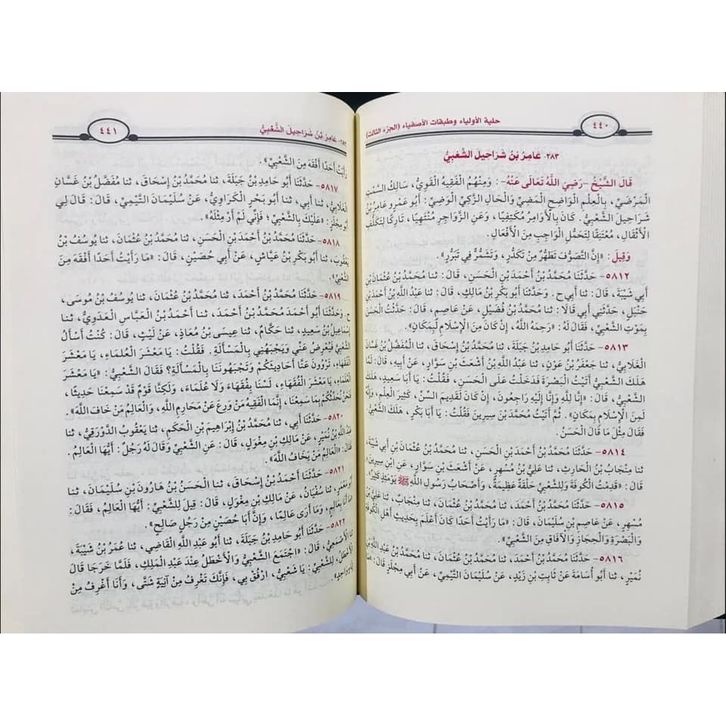 ٤٤٠
حلية الأولياء وطبقات الأصفياء (الجزء الثالث)
٢٨٣- عَامِرُ بْنُ شَرَاحِيلَ الشَّعْبِيُّ
قَالَ الشَّيْخُ -رَضِيَ اللَّهُ تَعَالَى عَنْهُ-: وَمِنْهُمُ الْفَقِيهُ الْقَوِيُّ، سَالِكُ السَّمْتِ
الْمَرْضِيِّ، بِالْعِلْمِ الْوَاضِحِ الْمُضِيِّ وَالْحَالِ الزَّكِيِّ الْوَضِيِّ، أَبُو عَمْرٍو عَامِرُ بْنُ
شَرَاحِيلَ الشَّعْبِيُّ. كَانَ بِالْأَوَامِرِ مُكْتَفِيًا، وَعَنِ الزَّوَاجِرِ مُنْتَهِيًا، تَارِكًا لِتَكَلُّفِ
الْأَثْقَالِ، مُعْتَنِقًا لِتَحَمُّلِ الْوَاجِبِ مِنَ الْأَفْعَالِ.
وَقِيلَ: «إِنَّ التَّصَوُّفَ تَطَهُّرٌ مِنْ تَكَدُّرٍ، وَتَشَمُّرٌ فِي تَبَرُّرٍ».
٥٨١٢- حَدَّثَنَا مُحَمَّدُ بْنُ أَحْمَدَ بْنِ الْحَسَنِ، قَالَ: ثنا مُحَمَّدُ بْنُ عُثْمَانَ بْنِ
أَبِي شَيْبَةَ، قَالَ: ثنا أَبِي ح. وَحَدَّثَنَا أَبُو بَكْرِ بْنُ مَالِكٍ، قَالَ: ثنا عَبْدُ اللَّهِ بْنُ أَحْمَدَ بْنِ
حَنْبَلٍ، حَدَّثَنِي أَبِي قَالَا: ثنا مُحَمَّدُ بْنُ فُضَيْلٍ، عَنْ عَاصِمٍ، قَالَ: حَدَّثْتُ الْحَسَنَ
بِمَوْتِ الشَّعْبِيِّ، فَقَالَ لَهُ: «رَحِمَهُ اللَّهُ، إِنْ كَانَ مِنَ الْإِسْلَامِ لَبِمَكَانٍ».
٥٨١٣- حَدَّثَنَا أَبُو حَامِدِ بْنُ جَبَلَةَ، ثنا مُحَمَّدُ بْنُ إِسْحَاقَ، ثنا الْمُفَضَّلُ بْنُ غَسَّانَ
الْغَلَابِيُّ، ثنا جَعْفَرُ بْنُ عَوْنٍ، ثنا عَبْدُ اللَّهِ بْنُ أَشْعَثَ بْنِ سَوَّارٍ، عَنْ أَبِيهِ، قَالَ: لَمَّا
هَلَكَ الشَّعْبِيُّ أَتَيْتُ الْبَصْرَةَ فَدَخَلْتُ عَلَى الْحَسَنِ، فَقُلْتُ: يَا أَبَا سَعِيدٍ،
هَلَكَ الشَّعْبِيُّ، قَالَ: «إِنَّا لِلَّهِ وَإِنَّا إِلَيْهِ رَاجِعُونَ، إِنْ كَانَ لَقَدِيمَ السِّنِّ، كَثِيرَ الْعِلْمِ، وَإِنَّهُ
لَمِنَ الْإِسْلَامِ بِمَكَانٍ». ثُمَّ أَتَيْتُ مُحَمَّدَ بْنَ سِيرِينَ فَقُلْتُ: يَا أَبَا بَكْرٍ، هَلَكَ الشَّعْبِيُّ،
فَقَالَ مِثْلَ مَا قَالَ الْحَسَنُ.
٥٨١٤- حَدَّثَنَا مُحَمَّدُ بْنُ أَحْمَدَ بْنِ الْحَسَنِ، ثنا مُحَمَّدُ بْنُ عُثْمَانَ بْنِ أَبِي شَيْبَةَ،
ثنا مِنْجَابُ بْنُ الْحَارِثِ، ثنا عَلِيُّ بْنُ مُسْهِرٍ، عَنْ أَشْعَثَ بْنِ سَوَّارٍ، عَنِ ابْنِ سِيرِينَ،
قَالَ: «قَدِمْتُ الْكُوفَةَ وَلِلشَّعْبِيِّ حَلْقَةٌ عَظِيمَةٌ، وَأَصْحَابُ رَسُولِ اللَّهِ ﷺ يَوْمَئِذٍ كَثِيرٌ».
٥٨١٥- حَدَّثَنَا مُحَمَّدُ بْنُ أَحْمَدَ، ثنا مُحَمَّدُ بْنُ عُثْمَانَ، ثنا مِنْجَابٌ، ثنا عَلِيُّ بْنُ
مُسْهِرٍ، عَنْ عَاصِمِ بْنِ سُلَيْمَانَ، قَالَ: «مَا رَأَيْتُ أَحَدًا كَانَ أَعْلَمَ بِحَدِيثِ أَهْلِ الْكُوفَةِ
وَالْبَصْرَةِ وَالْحِجَازِ وَالْآفَاقِ مِنَ الشَّعْبِيِّ».
٥٨١٦- حَدَّثَنَا مُحَمَّدُ بْنُ أَحْمَدَ بْنِ الْحَسَنِ، ثنا مُحَمَّدُ بْنُ عُثْمَانَ، ثنا ابْنُ
نُمَيْرٍ، ثنا أَبُو أُسَامَةَ عَنْ ثَابِتِ بْنِ زَيْدٍ، عَنْ سُلَيْمَانَ التَّيْمِيِّ، عَنْ أَبِي مِجْلَزٍ قَالَ: «مَا
٢٨٣- عَامِرُ بْنُ شَرَاحِيلَ الشَّعْبِيُّ
٤٤١
رَأَيْتُ أَحَدًا أَفْقَهَ مِنَ الشَّعْبِيِّ».
٥٨١٧- حَدَّثَنَا أَبُو حَامِدِ بْنُ جَبَلَةَ، ثنا مُحَمَّدُ بْنُ إِسْحَاقَ، ثنا مُفَضَّلُ بْنُ غَسَّانَ
الْغَلَابِيُّ، ثنا أَبِي، ثنا أَبُو بَحْرٍ الْبَكْرَاوِيُّ، عَنْ سُلَيْمَانَ التَّيْمِيِّ، قَالَ: قَالَ لِي
أَبُو مِجْلَزٍ: «عَلَيْكَ بِالشَّعْبِيِّ؛ فَإِنِّي لَمْ أَرَ مِثْلَهُ».
٥٨١٨- حَدَّثَنَا مُحَمَّدُ بْنُ أَحْمَدَ بْنِ الْحَسَنِ، ثنا مُحَمَّدُ بْنُ عُثْمَانَ، ثنا يُوسُفُ بْنُ
يَعْقُوبَ، ثنا أَبُو بَكْرِ بْنُ عَيَّاشٍ، عَنْ أَبِي حُصَيْنٍ، قَالَ: «مَا رَأَيْتُ أَحَدًا أَفْقَهَ مِنَ
الشَّعْبِيِّ».
٥٨١٩- حَدَّثَنَا مُحَمَّدُ بْنُ أَحْمَدَ، ثنا مُحَمَّدُ بْنُ عُثْمَانَ، ثنا يُوسُفُ بْنُ مُوسَى،
ح. وَحَدَّثَنَا أَبُو أَحْمَدَ مُحَمَّدُ بْنُ أَحْمَدَ، ثنا أَحْمَدُ بْنُ مُحَمَّدُ بْنُ الْعَبَّاسِ الْعَدَوِيُّ، ثنا
إِسْمَاعِيلُ بْنُ سَعِيدٍ، ثنا حَكَّامٌ، ثنا عِيسَى بْنُ مُعَاذٍ، عَنْ لَيْثٍ، قَالَ: كُنْتُ أَسْأَلُ
الشَّعْبِيَّ فَيُعْرِضُ عَنِّي وَيَجْبَهُنِي بِالْمَسْأَلَةِ. فَقُلْتُ: يَا مَعْشَرَ الْعُلَمَاءِ، يَا مَعْشَرَ
الْفُقَهَاءِ، تَرْوُونَ عَنَّا أَحَادِيثَكُمْ وَتَجْبَهُونَنَا بِالْمَسْأَلَةِ؟ فَقَالَ الشَّعْبِيُّ: «يَا مَعْشَرَ
الْعُلَمَاءِ، يَا مَعْشَرَ الْفُقَهَاءِ، لَسْنَا بِفُقَهَاءَ وَلَا عُلَمَاءَ، وَلَكِنَّا قَوْمٌ قَدْ سَمِعْنَا حَدِيثًا،
فَنَحْنُ نُحَدِّثُكُمْ بِمَا سَمِعْنَا، إِنَّمَا الْفَقِيهُ مَنْ وَرِعَ عَنْ مَحَارِمِ اللَّهِ، وَالْعَالِمُ مَنْ خَافَ اللَّهَ».
٥٨٢٠- حَدَّثَنَا مُحَمَّدٌ، ثنا مُحَمَّدُ بْنُ إِبْرَاهِيمَ بْنِ الْحَكَمِ، ثنا يَعْقُوبُ الدَّوْرَقِيُّ، ثنا
عَبْدُ اللَّهِ بْنُ نُمَيْرٍ، عَنْ مَالِكِ بْنِ مِغْوَلٍ، قَالَ: عَنِ الشَّعْبِيِّ وَقَالَ لَهُ رَجُلٌ: أَيُّهَا الْعَالِمُ.
قَالَ: «الْعَالِمُ مَنْ يَخَافُ اللَّهَ».
٥٨٢١- ثنا الْحَسَنُ بْنُ هَارُونَ بْنِ سُلَيْمَانَ، ثنا
ثنا سُفْيَانُ، عَنْ مَالِكِ بْنِ مِغْوَلٍ، قَالَ: قِيلَ لِلشَّعْبِيِّ: أَيُّهَا الْعَالِمُ، فَقَالَ:
بِعَالِمٍ، وَمَا أَرَى عَالِمًا، وَإِنَّ أَبَا حُصَيْنٍ مِنْ رَجُلٍ صَالِحٍ».
٥٨٢٢- حَدَّثَنَا أَبُو حَامِدِ بْنُ جَبَلَةَ، ثنا أَبُو عَبْدِ اللَّهِ الْقَاضِي، ثنا عُمَرُ بْنُ شَبَّةَ،
ثنا الْأَصْمَعِيُّ، قَالَ: «اجْتَمَعَ الشَّعْبِيُّ وَالْأَخْطَلُ عِنْدَ عَبْدِ الْمَلِكِ، فَلَمَّا خَرَجَا قَالَ
الْأَخْطَلُ لِلشَّعْبِيِّ: يَا شَعْبِيُّ، ارْفُقْ بِي، فَإِنَّكَ تَغْرِفُ مِنْ آنِيَةٍ شَتَّى، وَأَنَا أَغْرِفُ مِنْ